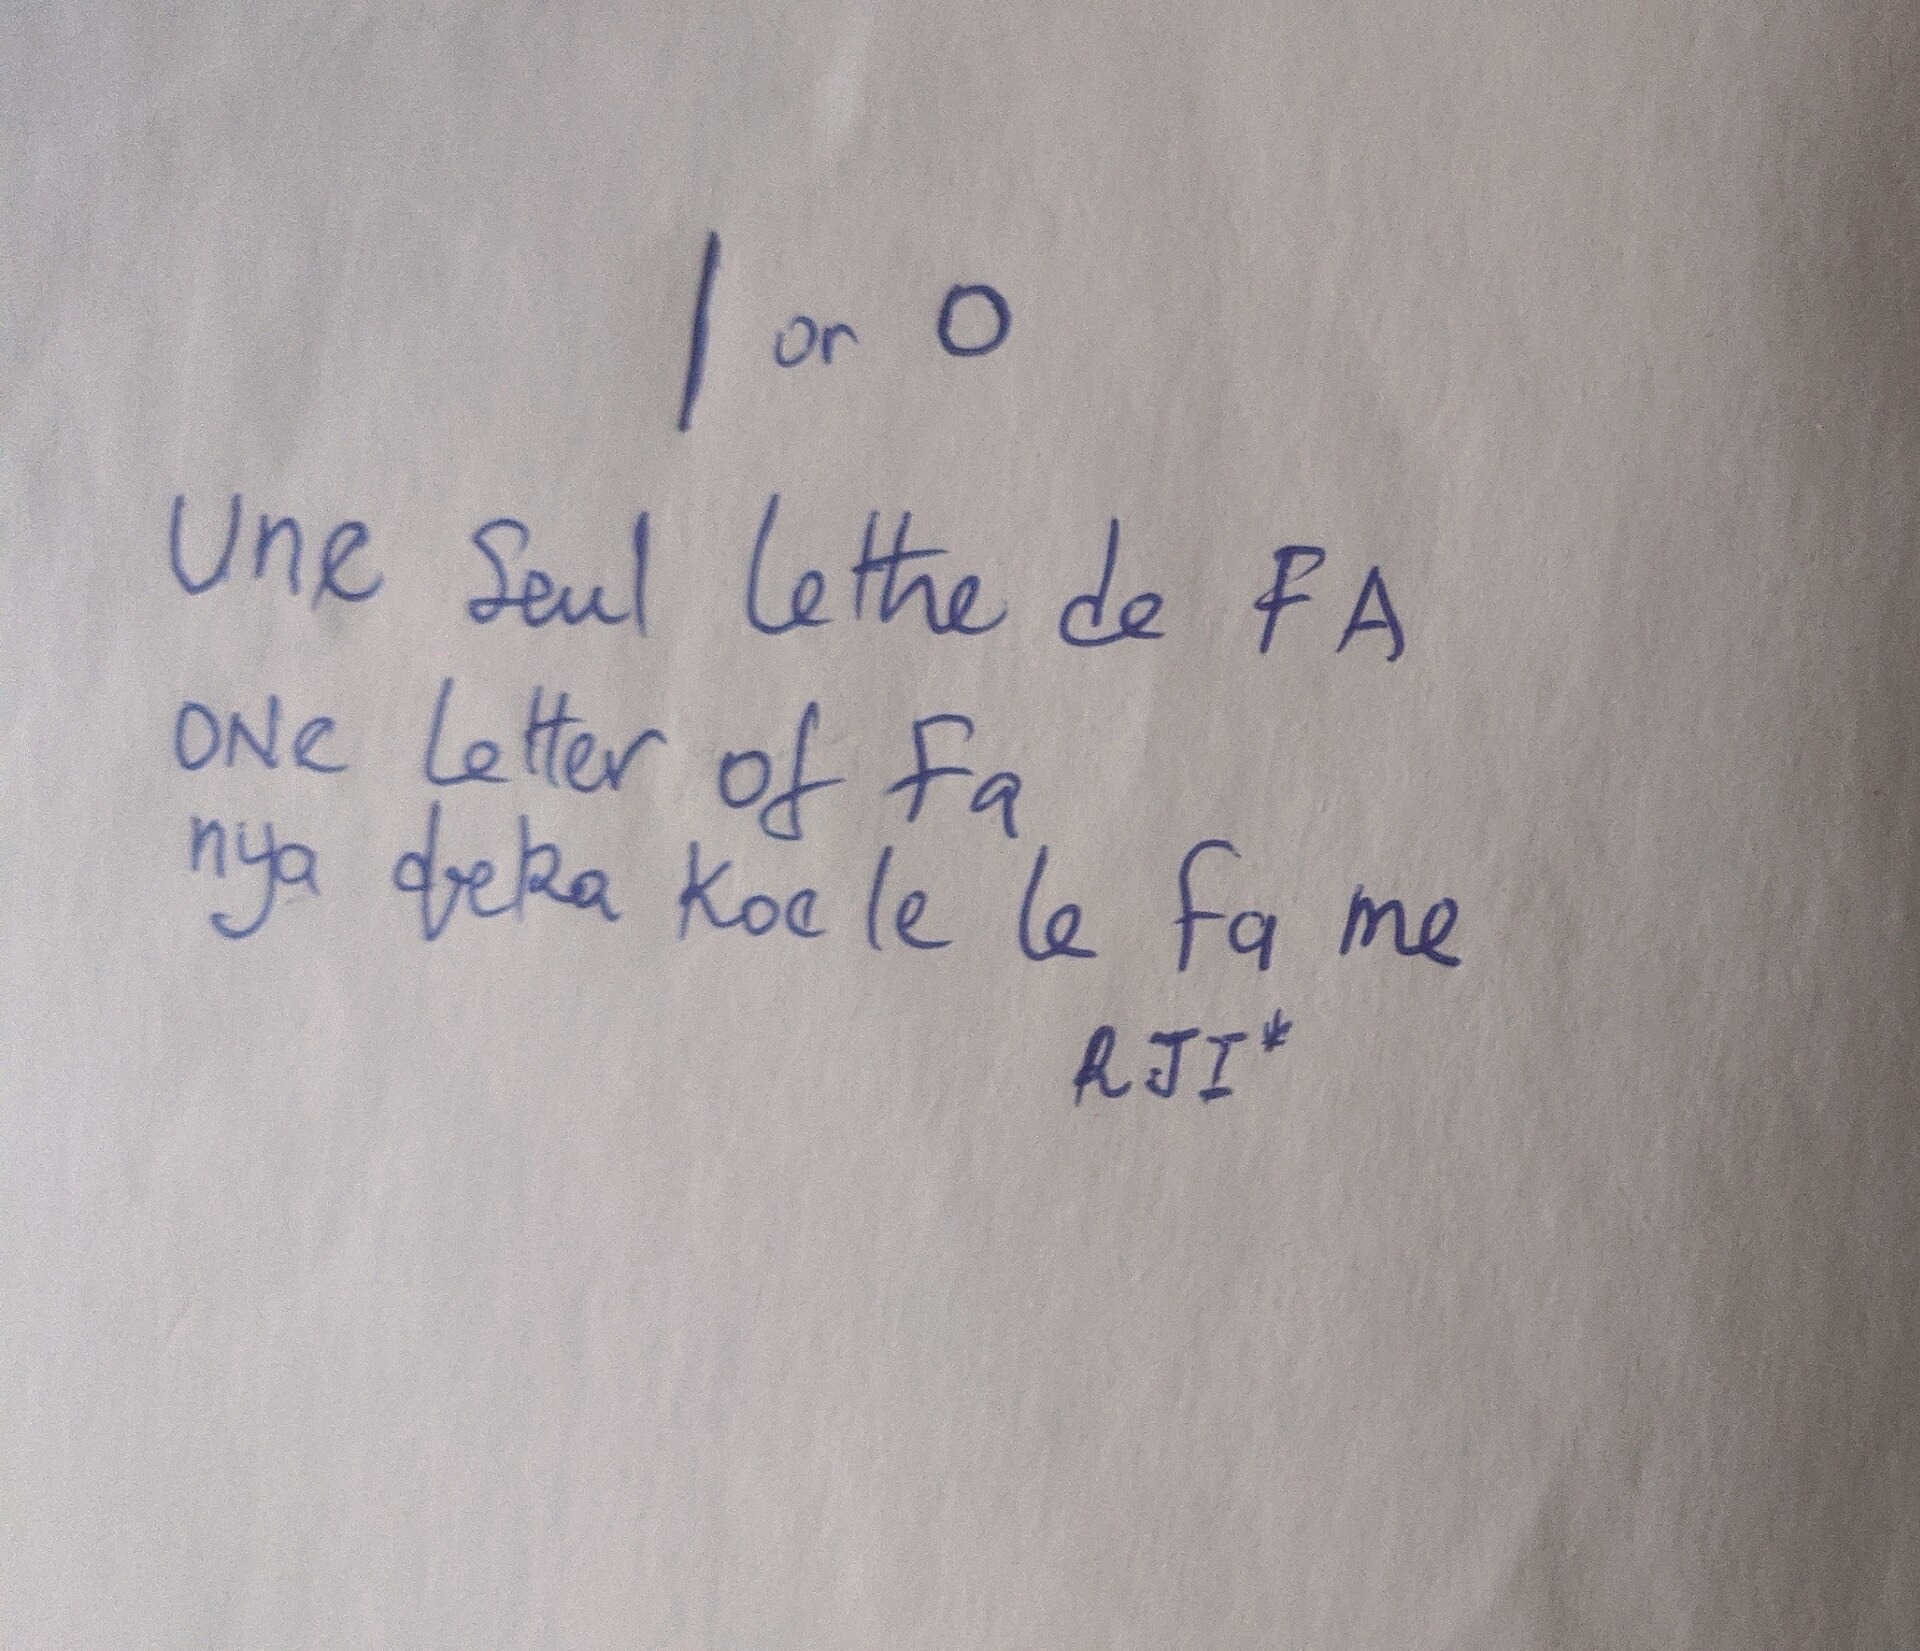 1 or 0
Une Seul lettre de FA
ONE letter of Fa
nya ɖeka Koe le le Fa me
RJI*